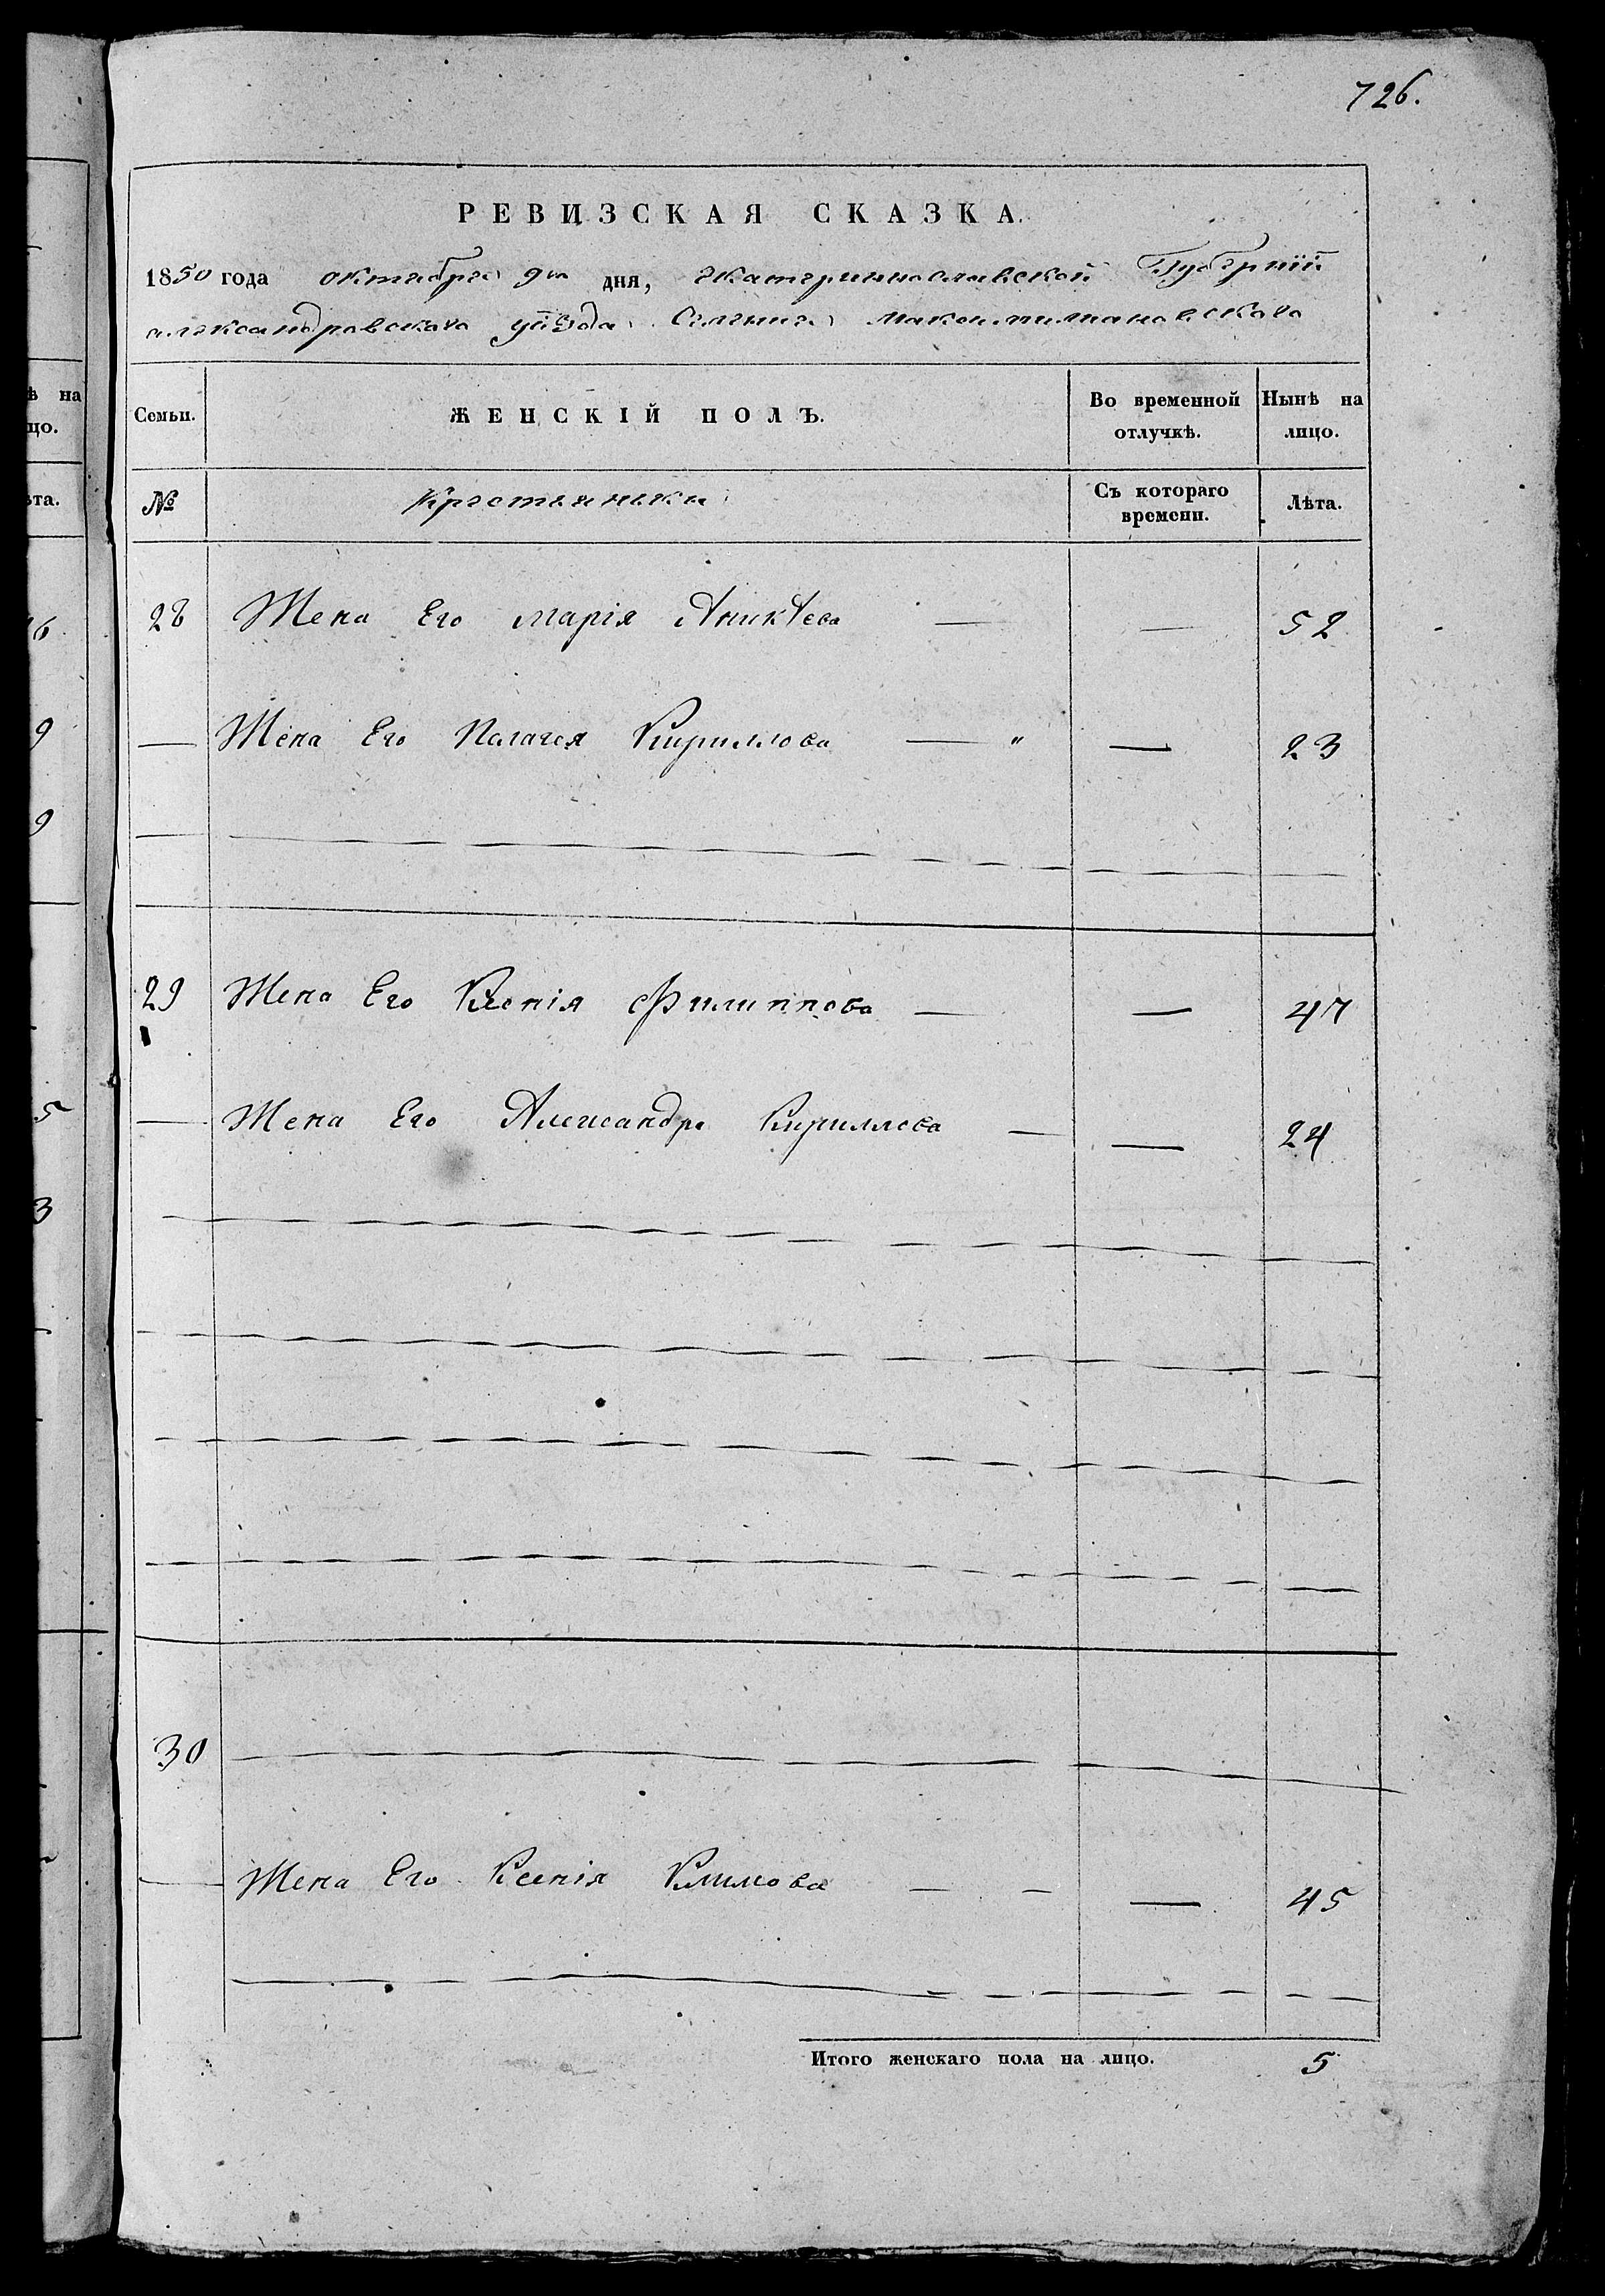 726.
РЕВИЗСКАЯ СКАЗКА.
1850 года октября 9го дня, Екатеринославской Губернии
александровского уезда Селения Максимилиановского
Семьи. ЖЕНСКІЙ ПОЛЪ. Во временной отлучкѣ. Нынѣ на лицо.
№ Крестьянки Съ котораго времени. Лѣта.
28 Жена Его марія Аникѣева — — 52
— Жена Его Пелагея Кириллова — " — 23
29 Жена Его Ксенія Филиппова — — 47
— Жена Его Александра Кириллова — — 24
30
— Жена Его Ксенія Климова — — — 45
Итого женскаго пола на лицо. 5